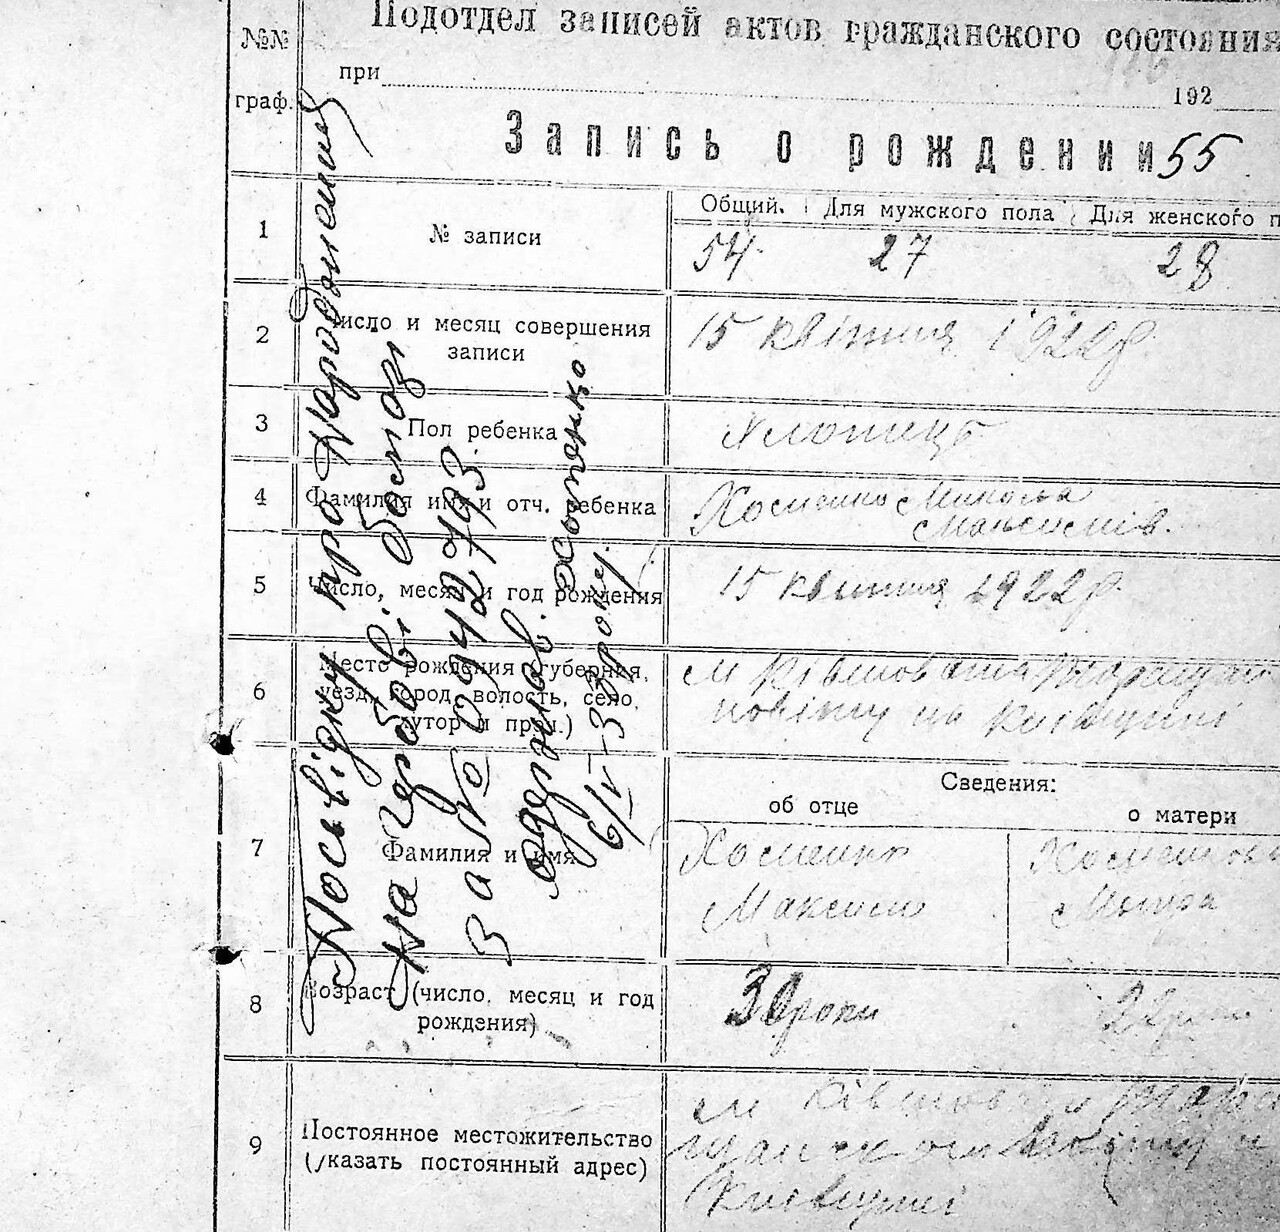 Подотдел записей актов гражданского состояния
№№
граф.
при 192
Запись о рождении 55
Общий. Для мужского пола Для женского п
1 № записи 54. 27 28
2 Число и месяц совершения
записи
15 квітня 1922 р.
3 Пол ребенка Хлопець
4 Фамилия имя и отч. ребенка Хоменко Микола
Максимів.
5 Число, месяц и год рождения 15 квітня 1922 р.
6 Место рождения (губерния,
уезд, город, волость, село,
хутор и проч.)
м Ківшовата
повіту на Київщині
Сведения:
об отце о матери
7 Фамилия и имя Хоменко
Максим
Мотря
8 Возраст (число, месяц и год
рождения)
30 роки 22
9 Постоянное местожительство
(указать постоянный адрес)
м Ківшовати Тара
щанськом повіту
Київщині
Посвідку про Народження
На Гербові
за № 0942793
одержав Хоменко
6/V-33 року.